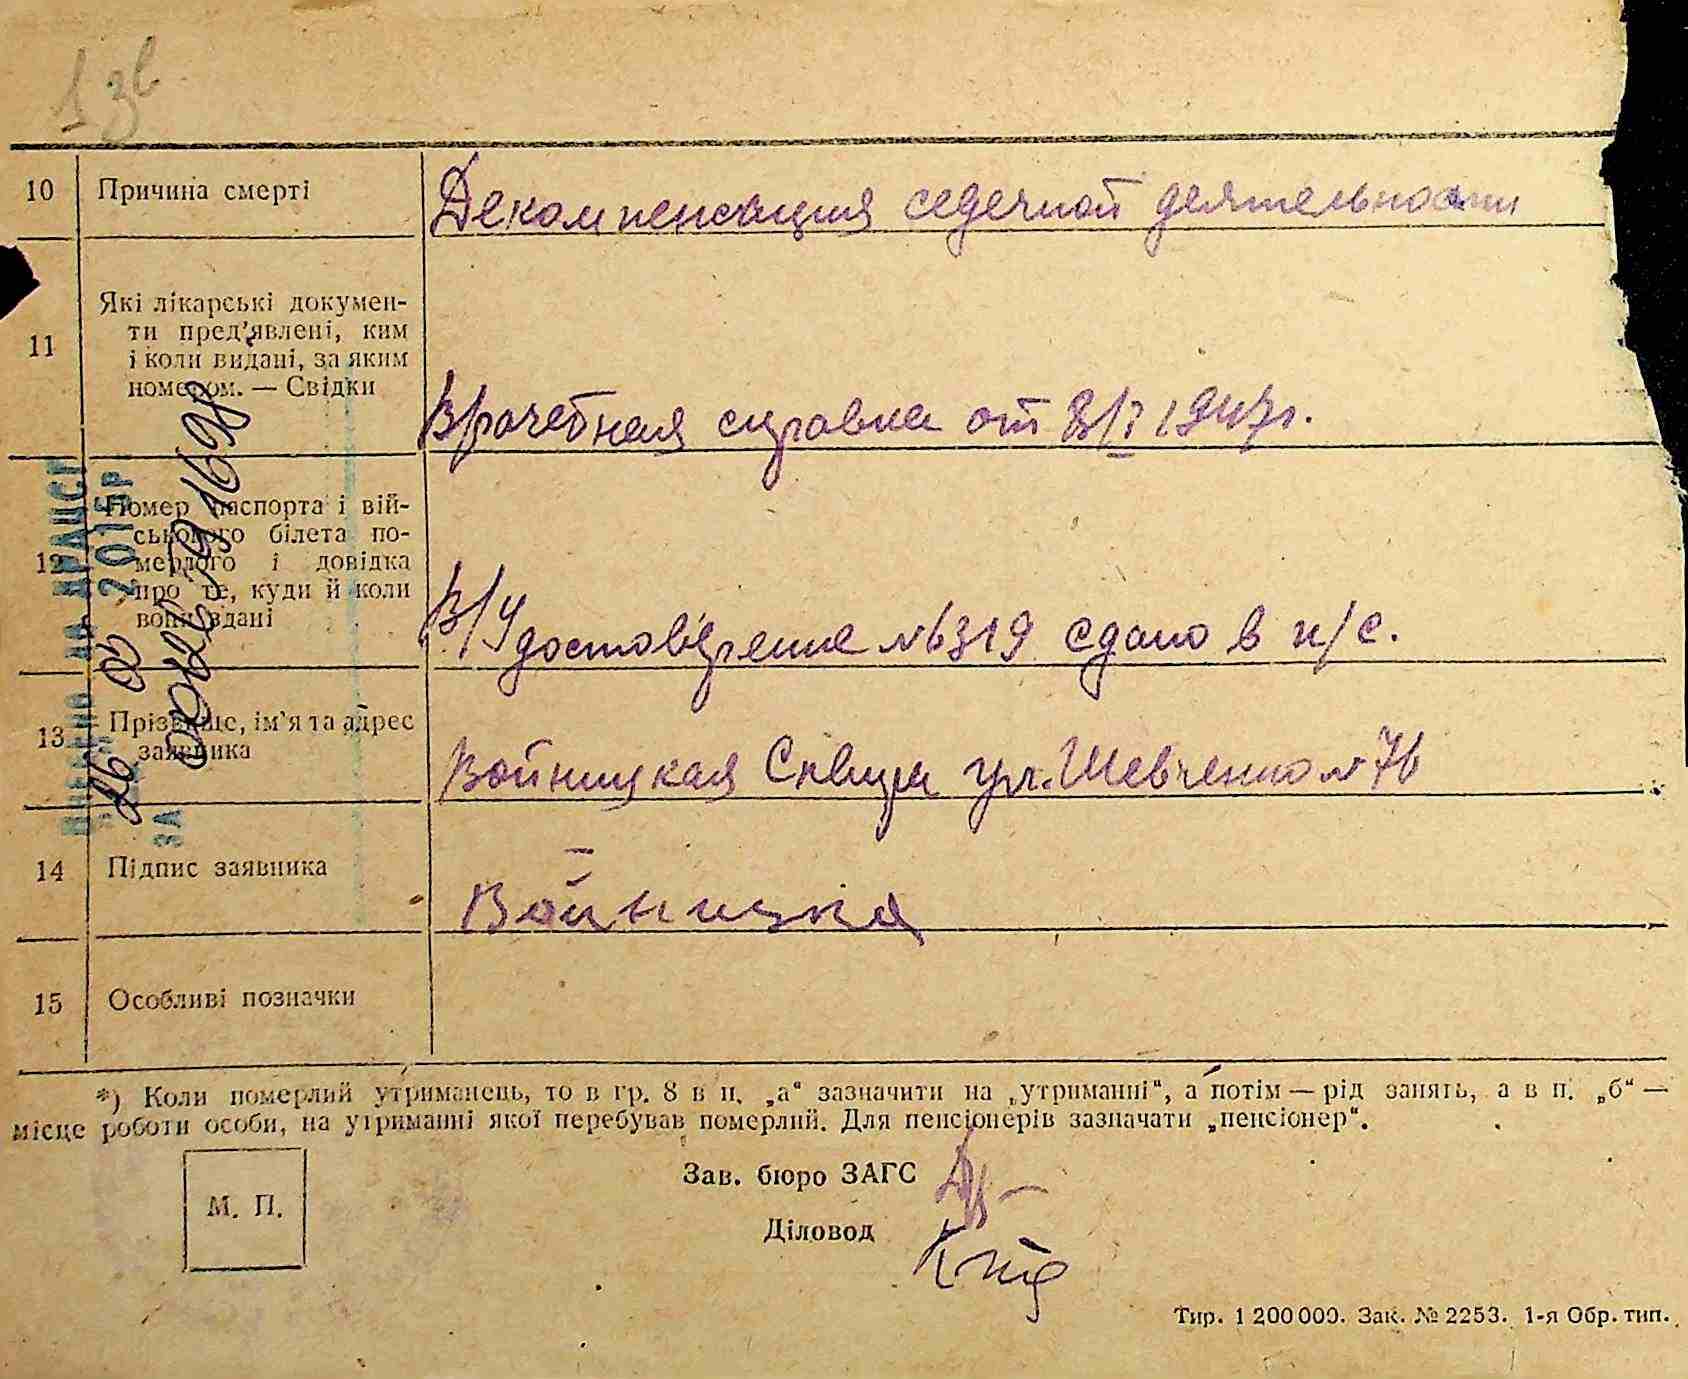 1 зв
10 Причина смерті Декомпенсация седечной деятельности
11 Які лікарські докумен-
ти пред'явлені, ким
і коли видані, за яким
номером. — Свідки
Врачебная справка от 8/I 1947г.
12 Номер паспорта і вій-
ського білета по-
мерлого і довідка
про те, куди й коли
вони здані
В/Удостоверение №6319 сдано в п/с.
13 Прізвище, ім'я та адрес
заявника
Войницкая Сквира ул. Шевченко № 76
14 Підпис заявника
Войницка
15 Особливі позначки
*) Коли померлий утриманець, то в гр. 8 в п. „а“ зазначити на „утриманні“, а потім — рід занять, а в п. „б“ —
місце роботи особи, на утриманні якої перебував померлий. Для пенсіонерів зазначати „пенсіонер“.
М. П.
Зав. бюро ЗАГС
Діловод
Тир. 1 200 000. Зак. № 2253. 1-я Обр. тип.
ДРАЦСГ
2015Р
ЗА